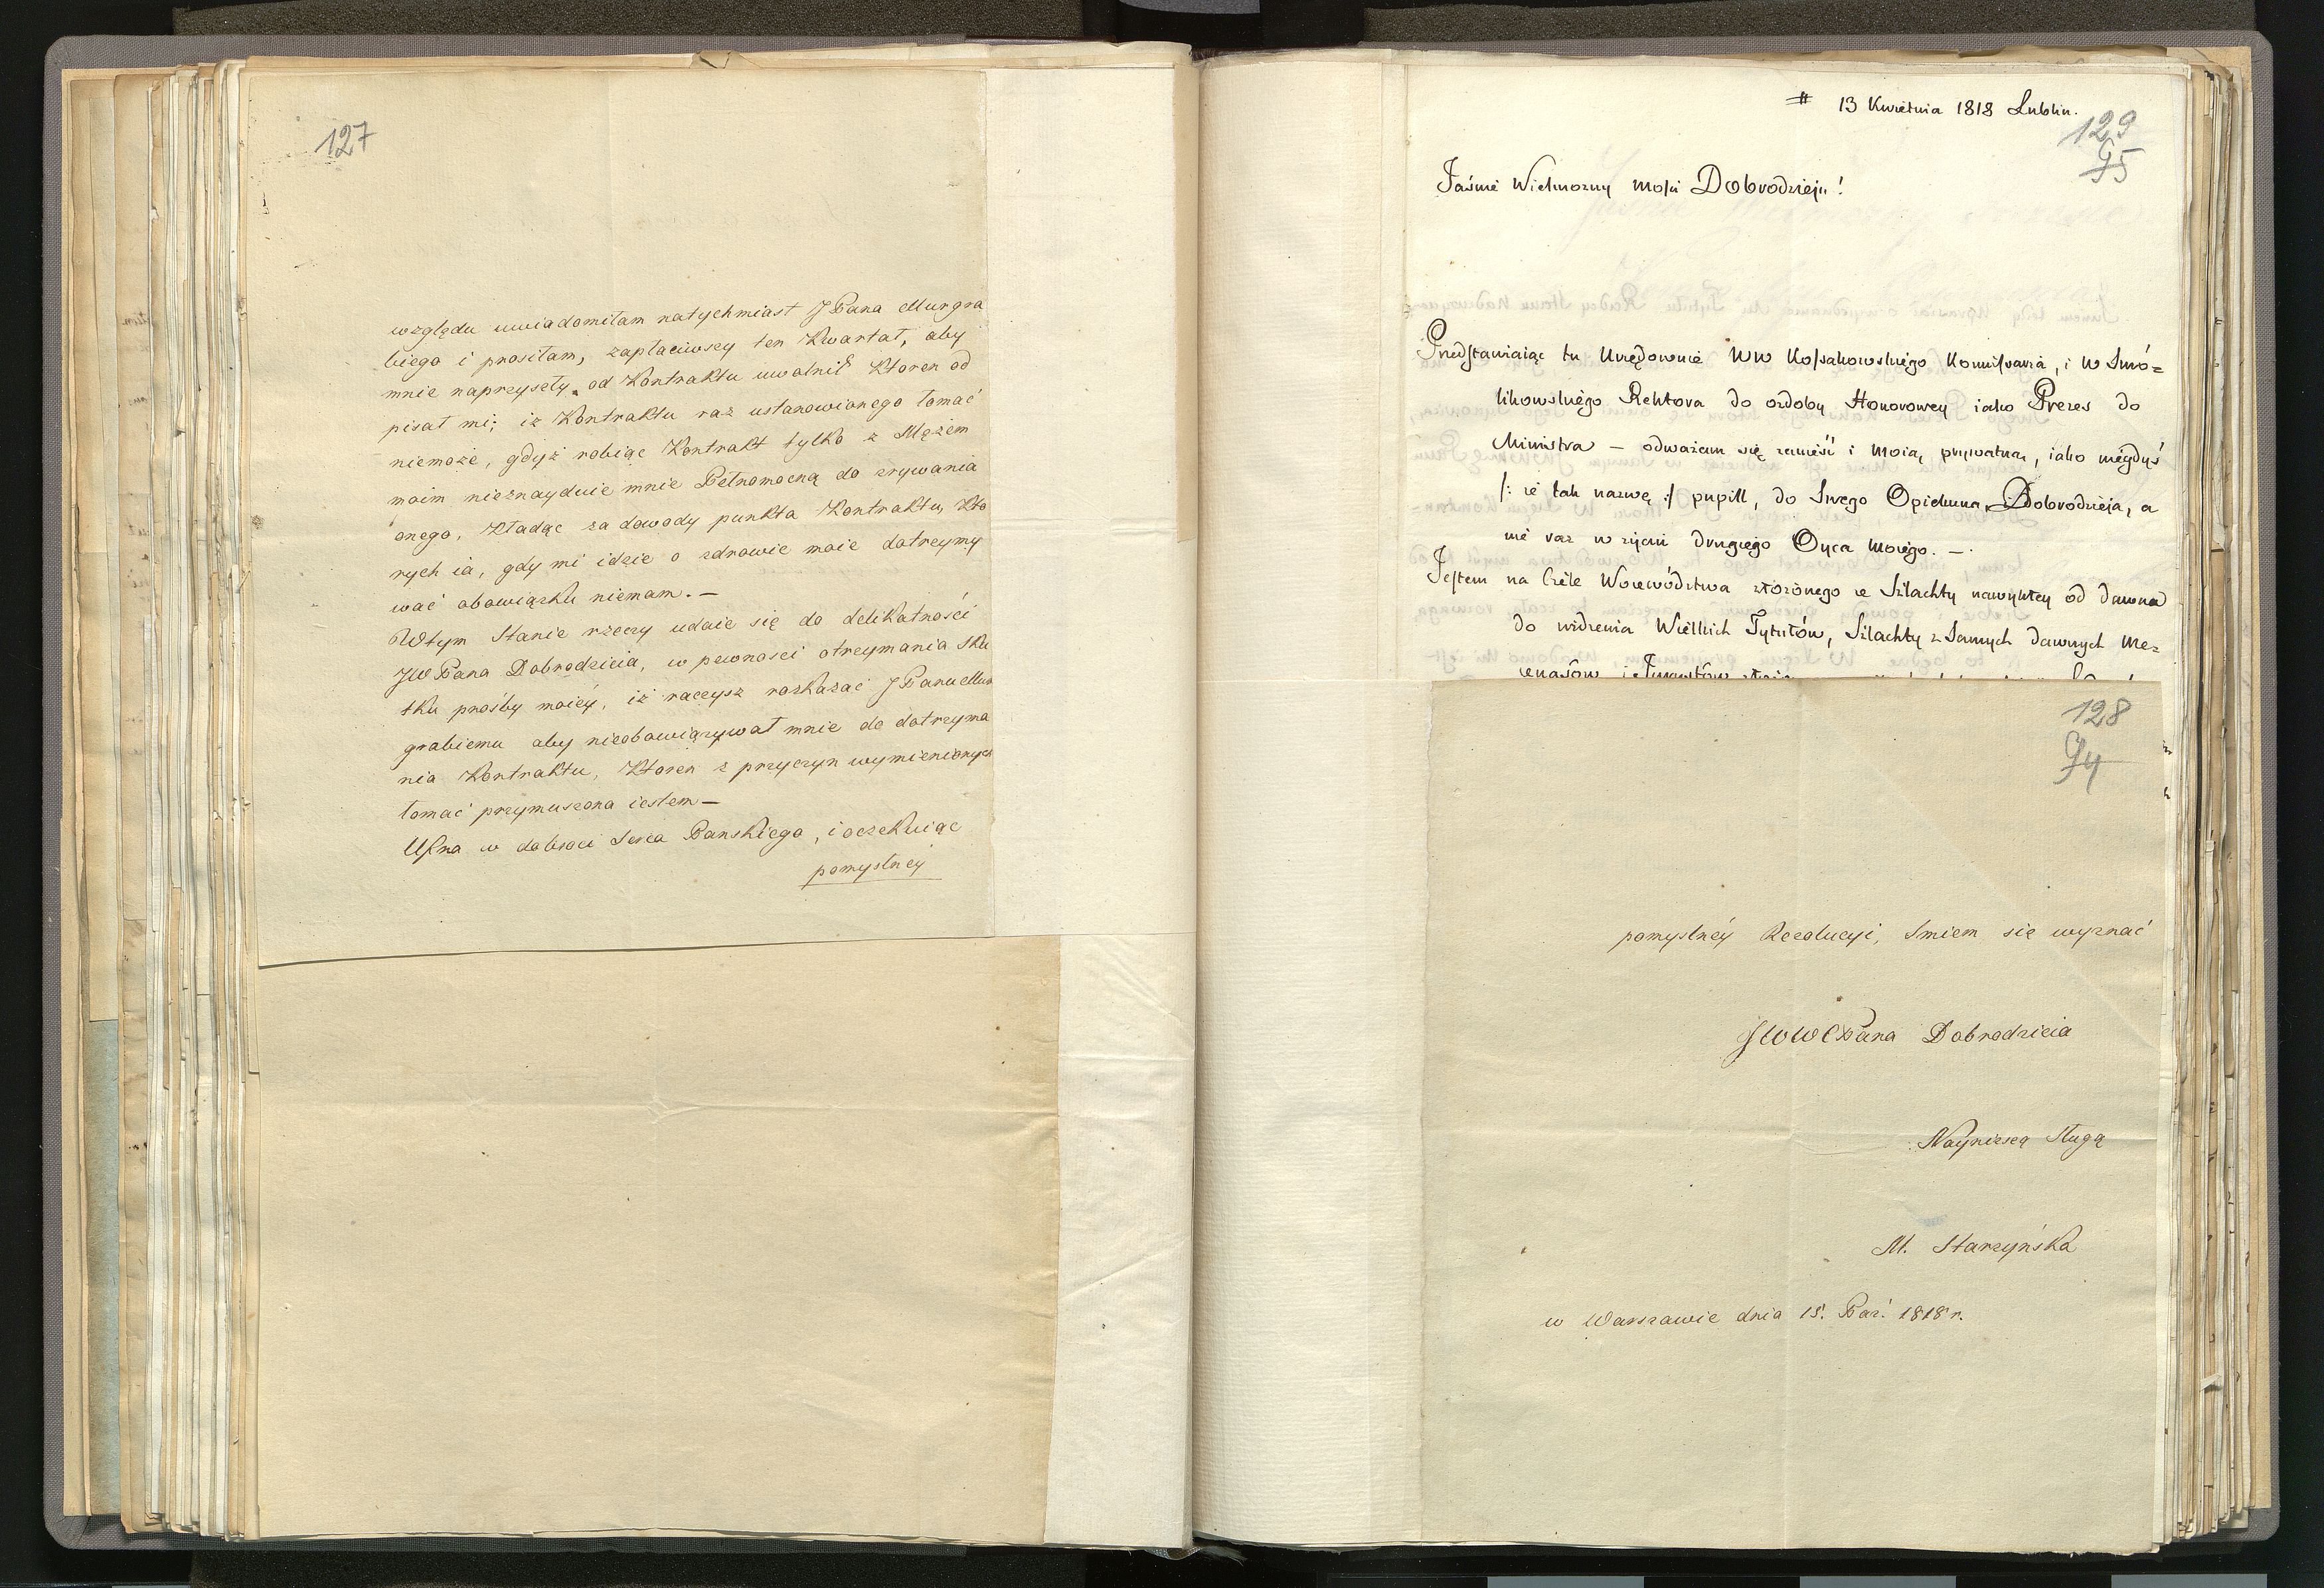 127
względu uwiadomiłam natychmiast JPana Murgra
biego i prosiłam, zapłaciwszy ten Kwartał, aby
mnie naprzyszły od Kontraktu uwolnił Ktoren od
pisał mi; iż Kontraktu raz ustanowionego łomać
niemoże, gdyż robiąc Kontrakt tylko z Mężem
moim nieznayduie mnie Pełnomocną do zrywania
onego, Kładąc za dowody punkta Kontraktu, Kto
rych ia, gdy mi idzie o zdrowie moie dotrzymy
wać obowiązku niemam. —
Wtym Stanie rzeczy udaie się do delikatności
JWPana Dobrodzieia, w pewnosci otrzymania sku
tku prośby moiéy, iż raczysz rozkazać JPanu Mur
grabiemu aby nieobowiązywał mnie do dotrzyma
nia Kontraktu, Ktoren z przyczyn wymienionych
łomać przymuszona iestem —
Ufna w dobroci Serca Panskiego, i oczekuiąc
pomyslney
# 13 Kwietnia 1818 Lublin.
129
95
Jaśnié Wielmozny Mości Dobrodzieju!
Przedstawiaiąc tu Urzędownie WW Kossakowskiégo Kommissarza, i W Smó=
likowskiégo Rektora do ozdoby Honorowey iako Prezes do
Ministra — odważam się zanieść i moią prywatną, iako niégdyś
/: że tak nazwę :/ pupill, do Swego Opiekuna, Dobrodzieja, a
nié raz w życiu drugiégo Oyca moiégo. —
Jestem na Czéle Woiewództwa złożonego ze Szlachty nawykłey od dawna
do widzenia Wielkich Tytułów, Szlachty z Samych dawnych Me=
128
94
pomyslnéy Rezolucyi, Smiem się wyznać
JWWPana Dobrodzieia
Nayniższą Sługą
M. Starzyńska
w Warszawie dnia 15. Paź: 1818 r.